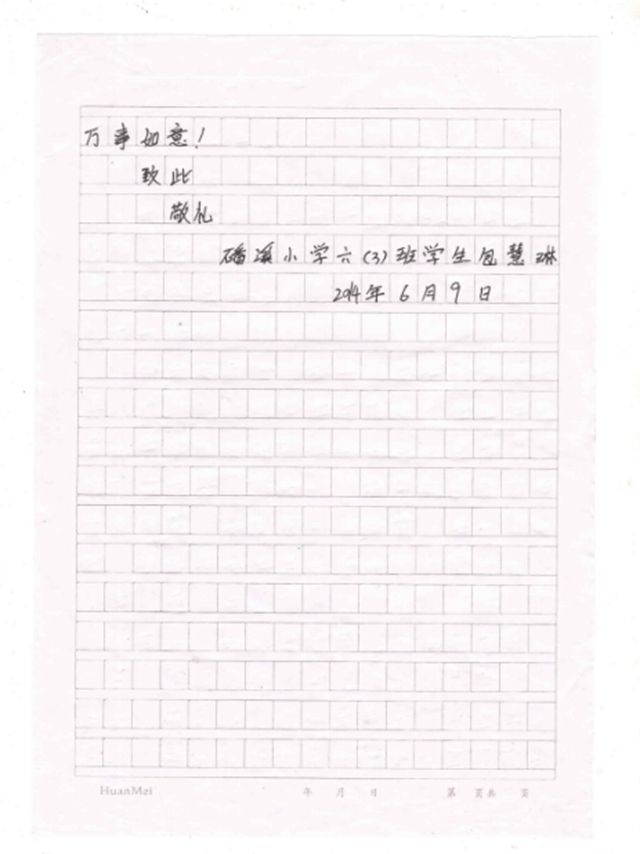 万事如意！
致此
敬礼
磻溪小学六(3)班学生包慧琳
2014年6月9日
HuanMei 年 月 日 第 页共 页